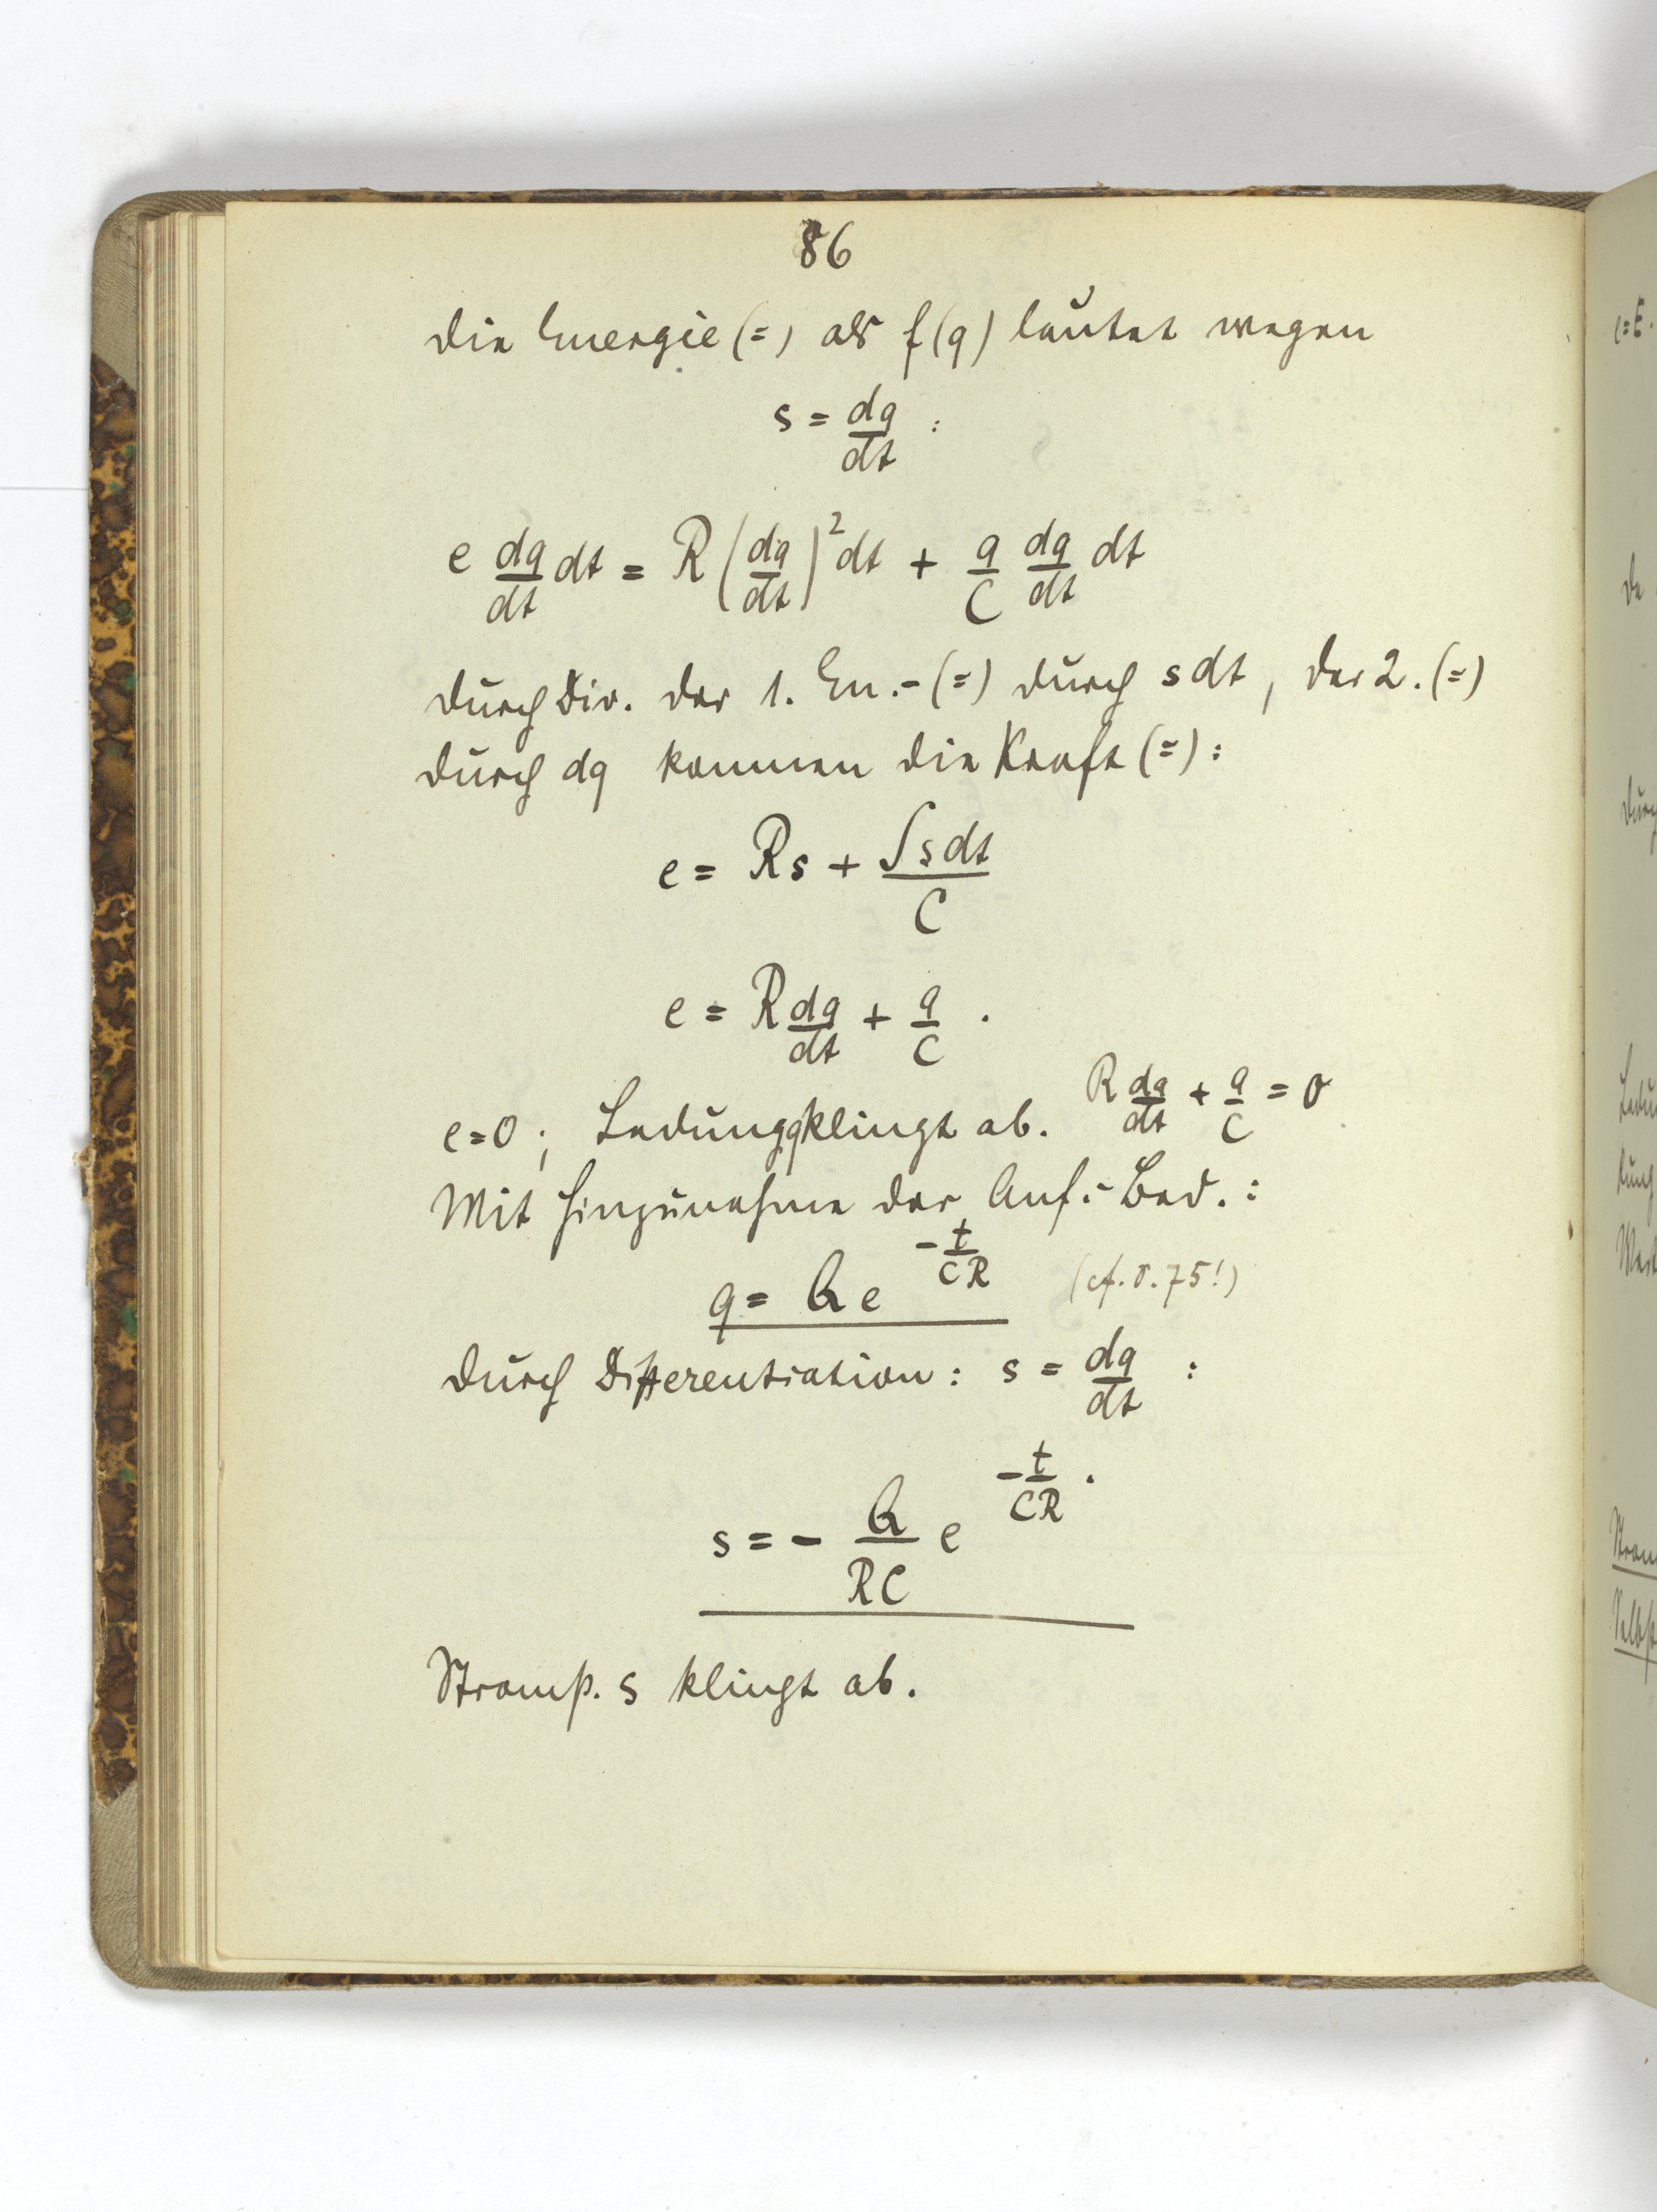 86
Die Energie (=) als f(q) lautet wegen
s = dq/dt :
e dq/dt dt = R (dq/dt)² dt + q/C dq/dt dt
Durch Div. der 1. En.-(=) durch s dt, der 2. (=)
durch dq kommen die Kraft (=):
e = Rs + ∫s dt/C
e = R dq/dt + q/C .
e=0; Ladung q klingt ab. R dq/dt + q/C = 0
Mit Hinzunahme der Anf.-Bed.:
q = Q e^(-t/CR) (cf. S. 75!)
Durch Differentiation: s = dq/dt :
s = - Q/RC e^(-t/CR) .
Stromst. s klingt ab.